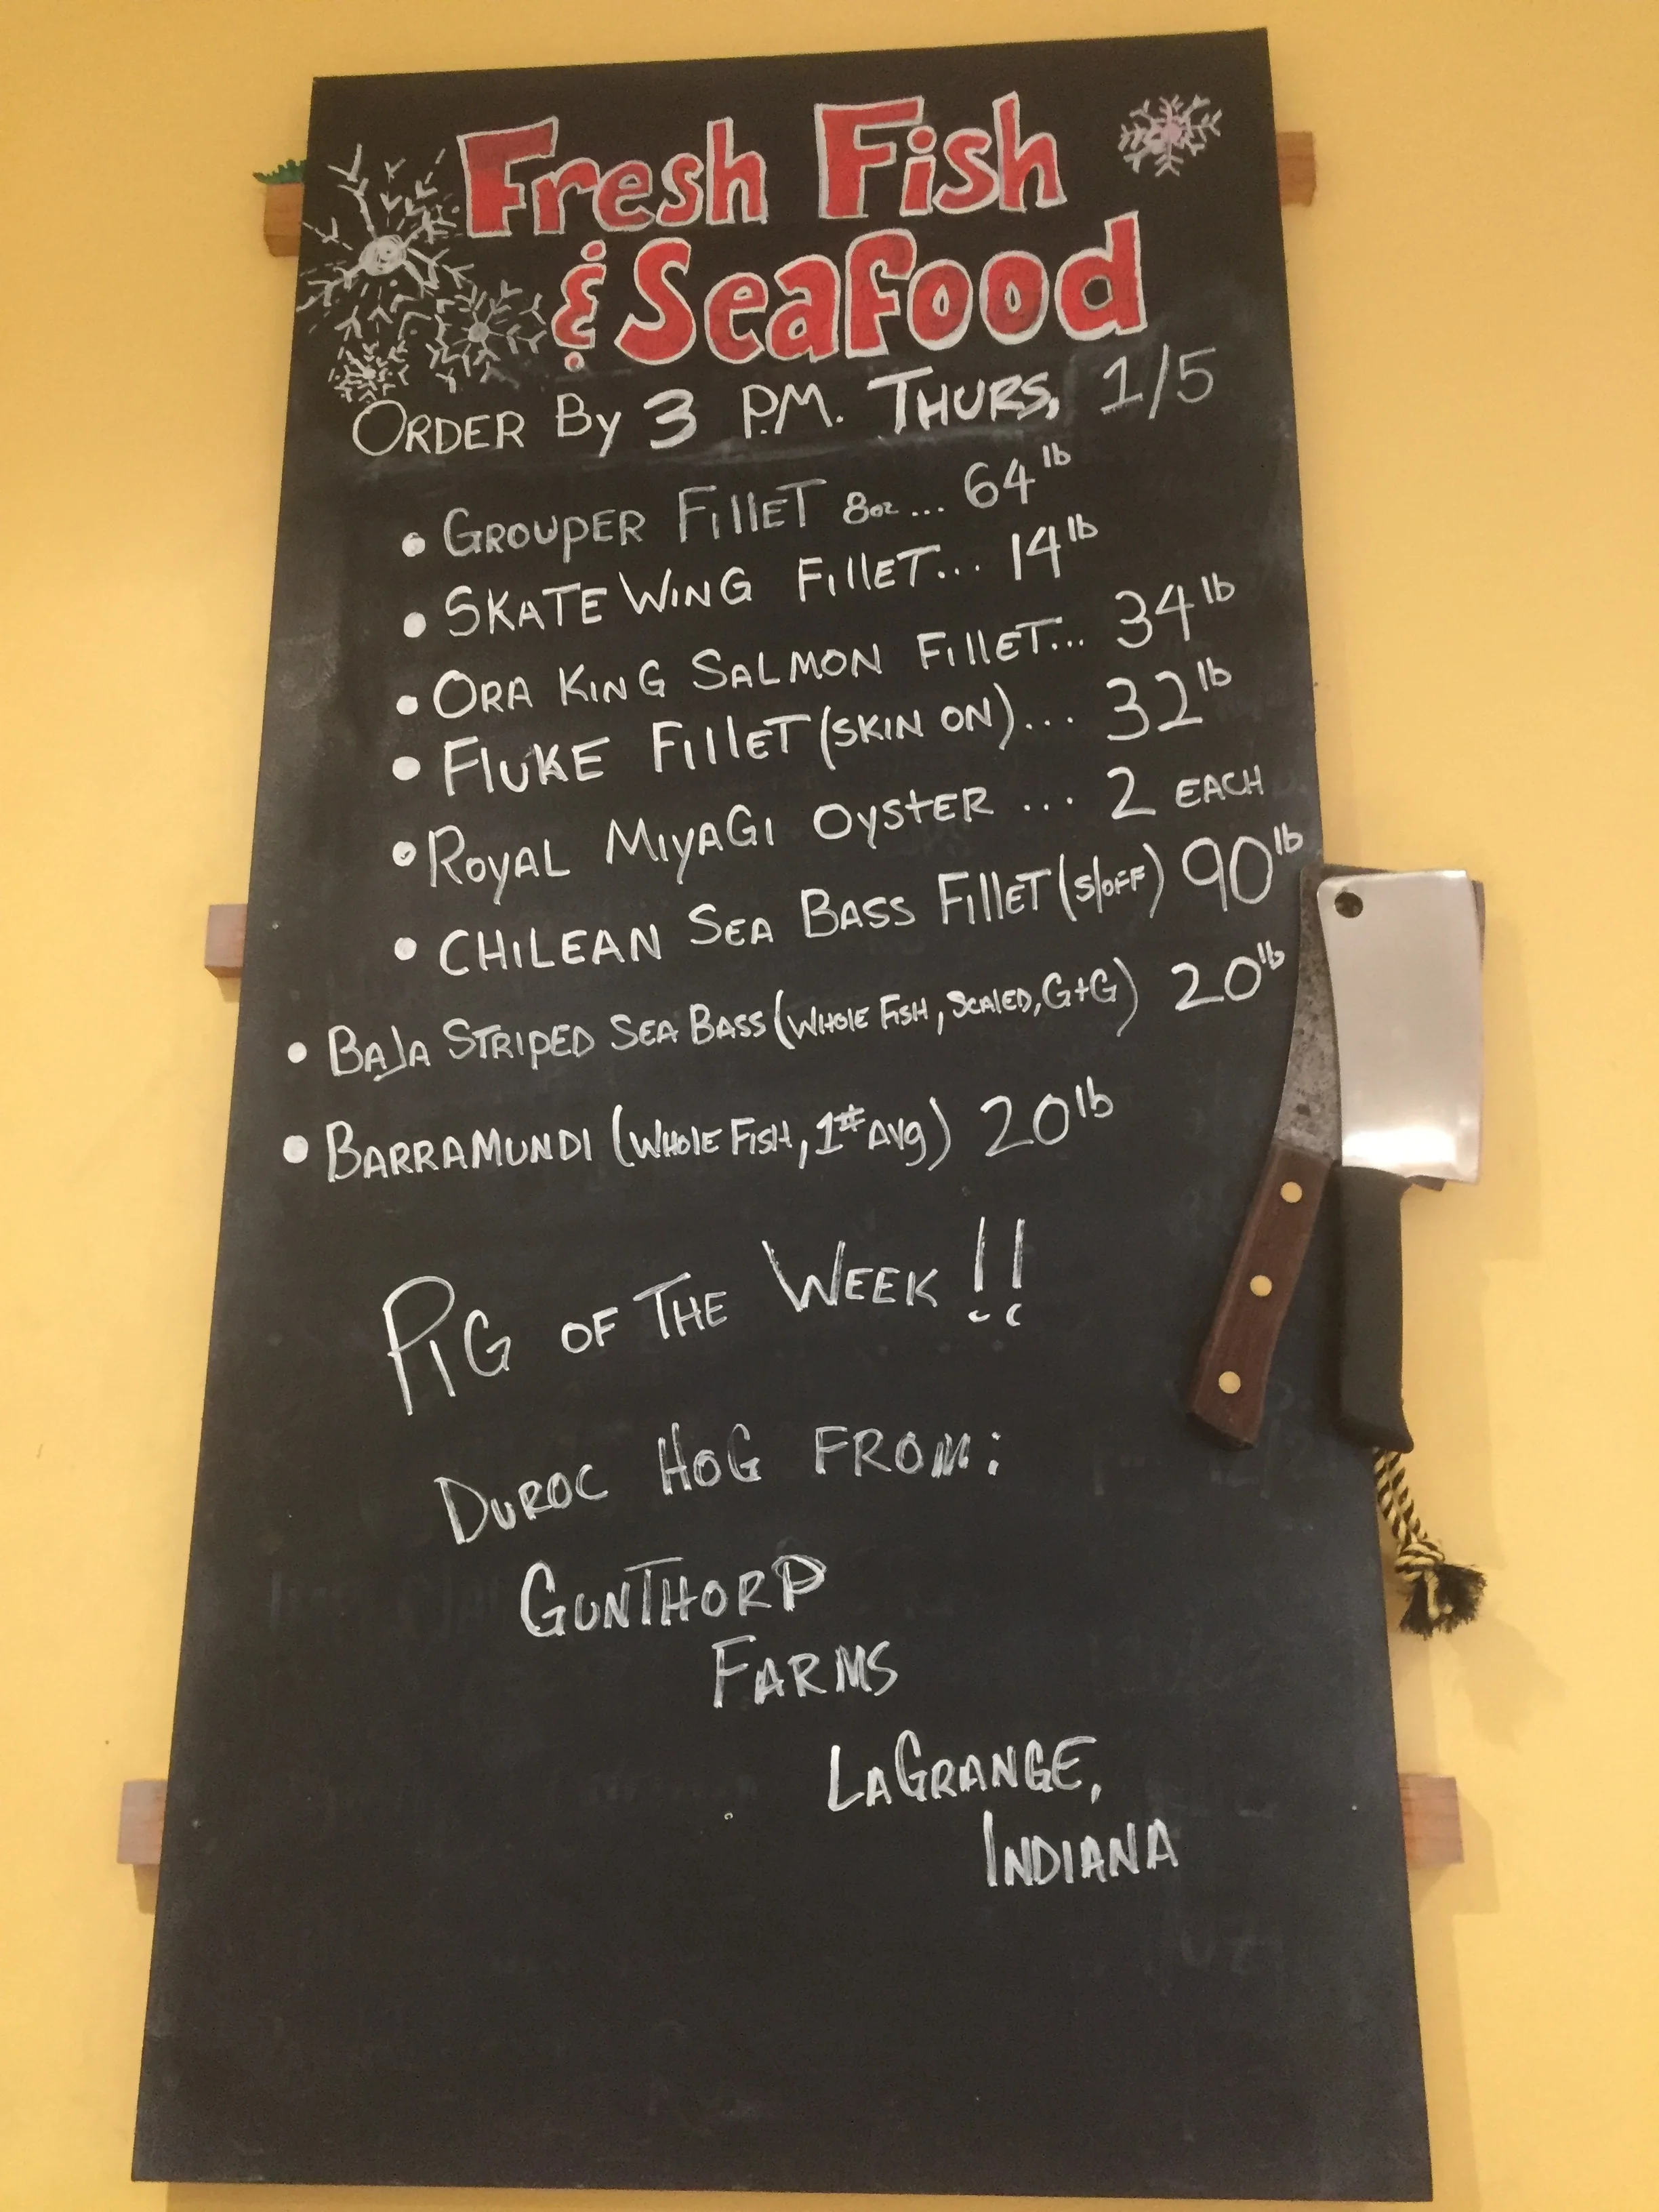 Fresh Fish
& Seafood
ORDER By 3 P.M. THURS, 1/5
• GROUPER FillET 8oz... 64 lb
• SKATE WING FillET... 14 lb
• ORA KING SALMON FillET... 34 lb
• FlUKE FillET (SKIN ON)... 32 lb
• ROYAL MIYAGI OYSTER ... 2 EACH
• CHILEAN SEA BASS FillET (S/OFF) 90 lb
• BAJA STRIPED SEA BASS (WHOlE FISH, SCAlED, G+G) 20 lb
• BARRAMUNDI (WHOlE FISH, 1# AVg) 20 lb
PIG OF THE WEEK!!
DUROC HOG FROM:
GUNTHORP
FARMS
LAGRANGE,
INDIANA